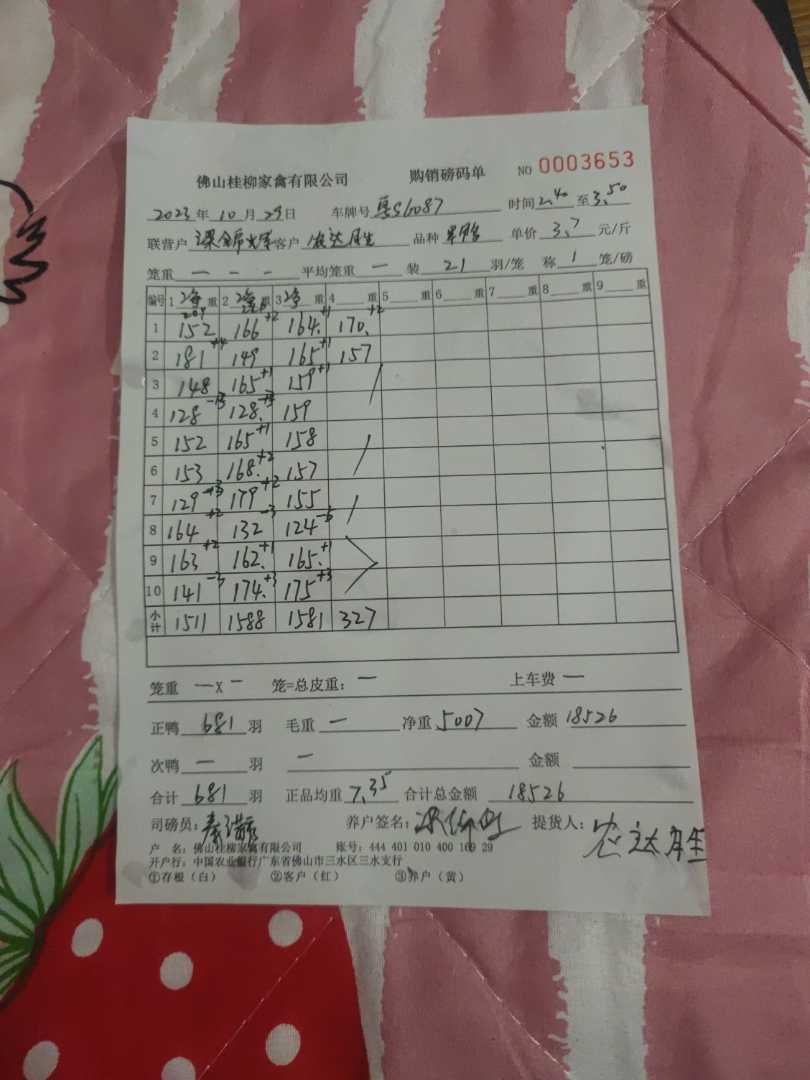 佛山桂柳家禽有限公司 购销磅码单 NO 0003653
2023年10月29日 车牌号 粤S6087 时间2.40至3.50
联营户 客户 农达胜 品种 单价 3.7 元/斤
笼重 — — — 平均笼重 — 装 21 羽/笼 称 1 笼/磅
编号 1 净重 2 净重 3 净重 4 重 5 重 6 重 7 重 8 重 9 重
1 152 166+2 164.+1 170.+2
2 181+4 149 165+1 157
3 148 165+1 159+1
4 128-3 128.-3 159
5 152 165+1 158
6 153 168.+2 157
7 129-3 179+2 155
8 164+2 132-3 124-6
9 163+2 162.+1 165.+1
10 141-3 174.+3 175+3
小计 1511 1588 1581 327
笼重 —X— 笼=总皮重：— 上车费 —
正鸭 681 羽 毛重 — 净重 5007 金额 18526
次鸭 — 羽 — 金额
合计 681 羽 正品均重 7.35 合计总金额 18526
司磅员： 养户签名： 提货人：农达胜
户 名：佛山桂柳家禽有限公司 账号：444 401 010 400 169 29
开户行：中国农业银行广东省佛山市三水区三水支行
①存根（白） ②客户（红） ③养户（黄）